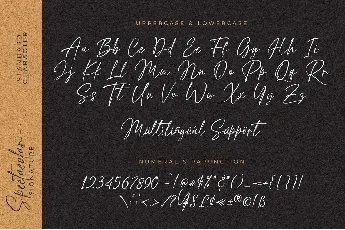 UPPERCASE & LOWERCASE
Aa Bb Cc Dd Ee Ff Gg Hh Ii
Jj Kk Ll Mm Nn Oo Pp Qq Rr
Ss Tt Uu Vv Ww Xx Yy Zz
Multilingual Support
NUMERALS & PUNCTION
1234567890
STANDARD
CHARACTER
Spectacular
SIGNATURE